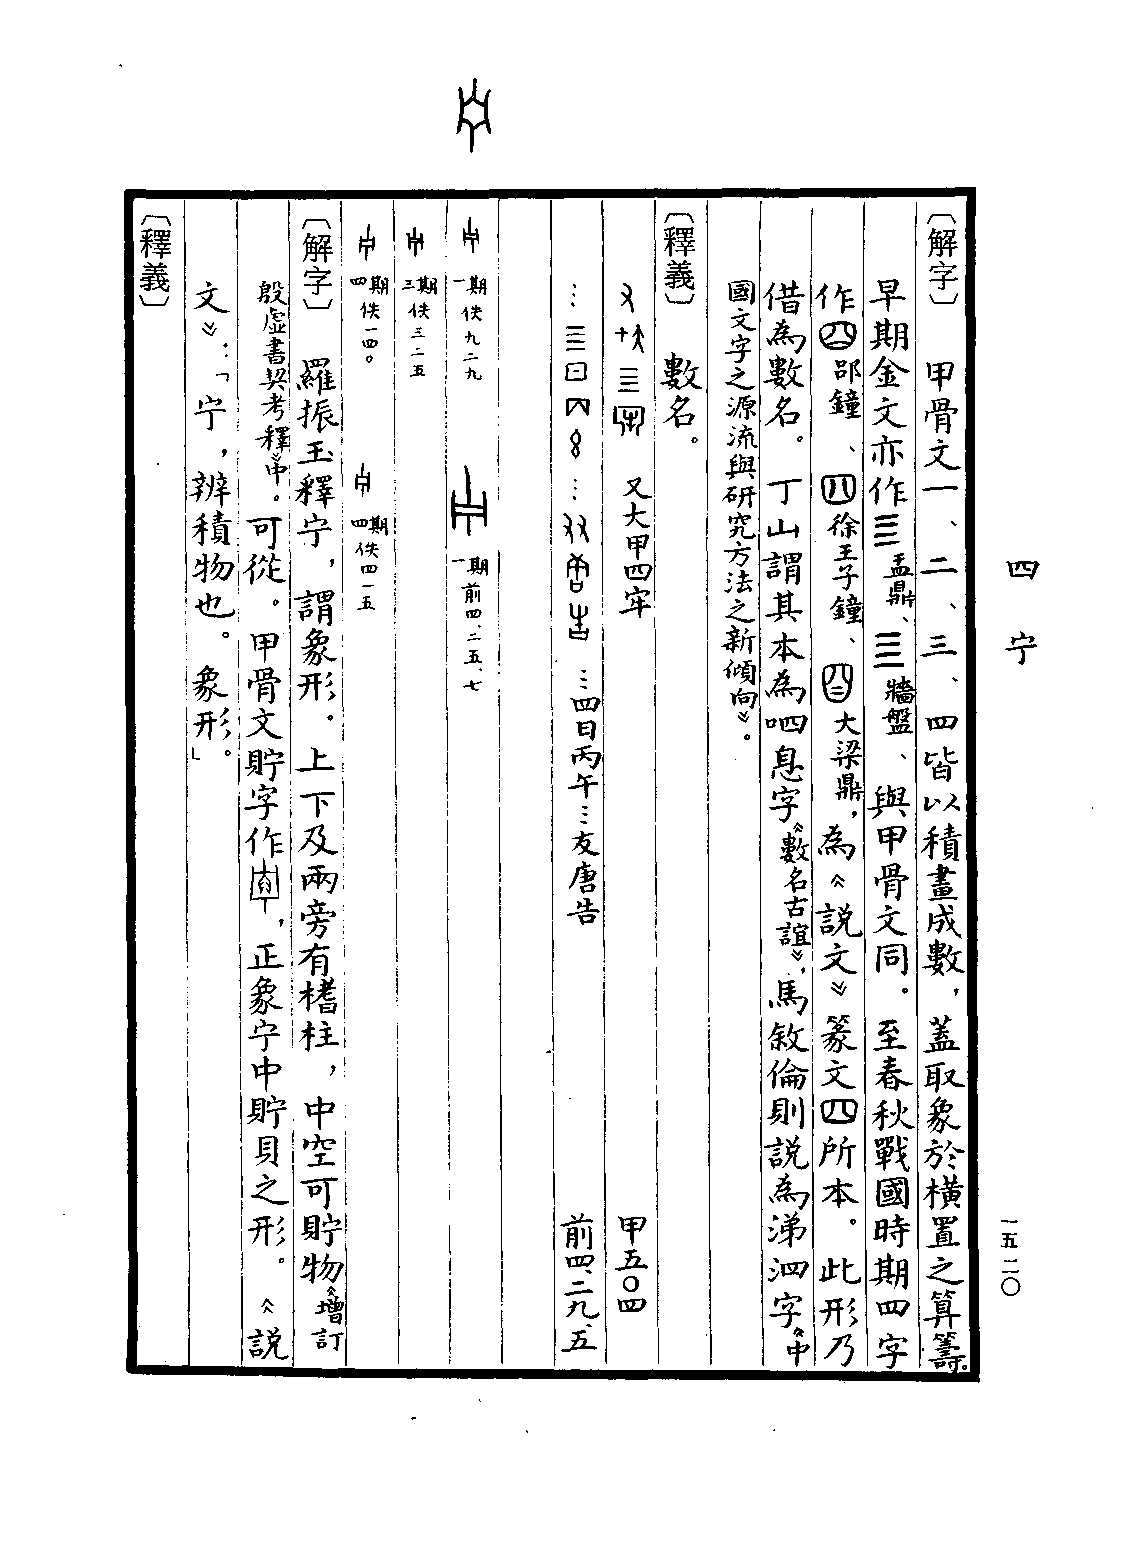 四 宁
一五二〇
〔解字〕 甲骨文一、二、三、四皆以積畫成數，蓋取象於橫置之算籌。
早期金文亦作亖盂鼎、亖牆盤、與甲骨文同。至春秋戰國時期四字
作 郘鐘、 徐王子鐘、 大梁鼎，為《說文》篆文四所本。此形乃
借為數名。丁山謂其本為呬息字《數名古誼》，馬敘倫則說為涕泗字《中
國文字之源流與研究方法之新傾向》。
〔釋義〕 數名。
又大甲四牢 甲五〇四
…四日丙午…友唐告 前四、二九、五
一期佚九二九 一期前四、二五、七
三期佚三二五
四期佚一四〇 四期佚四一五
〔解字〕 羅振玉釋宁，謂象形。上下及兩旁有榰柱，中空可貯物《增訂
殷虛書契考釋》中。可從。甲骨文貯字作 ，正象宁中貯貝之形。《說
文》：「宁，辨積物也。象形。」
〔釋義〕